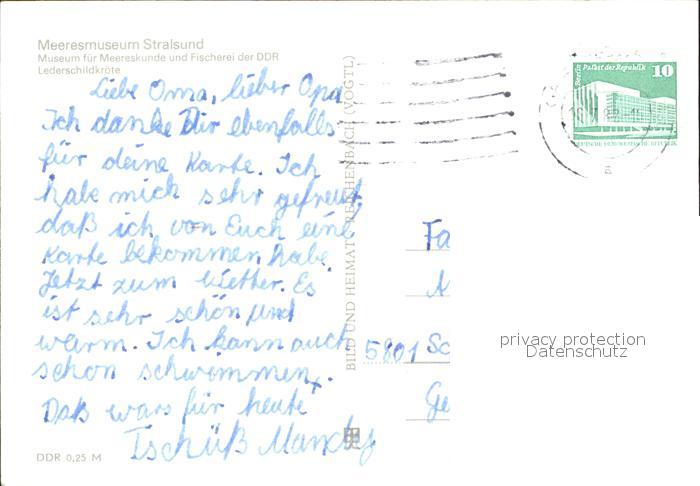 Meeresmuseum Stralsund
Museum für Meereskunde und Fischerei der DDR
Lederschildkröte
Liebe Oma, lieber Opa
Ich danke Dir ebenfalls
für deine Karte. Ich
habe mich sehr gefreut,
daß ich von Euch eine
Karte bekommen habe.
Jetzt zum Wetter. Es
ist sehr schön und
warm. Ich kann auch
schon schwimmen.
Daß wars für heute
Tschüß
DDR 0,25 M
BILD UND HEIMAT REICHENBACH (VOGTL)
Berlin Palast der Republik 10
DEUTSCHE DEMOKRATISCHE REPUBLIK
Fa
5801 Sc
Ge
privacy protection
Datenschutz